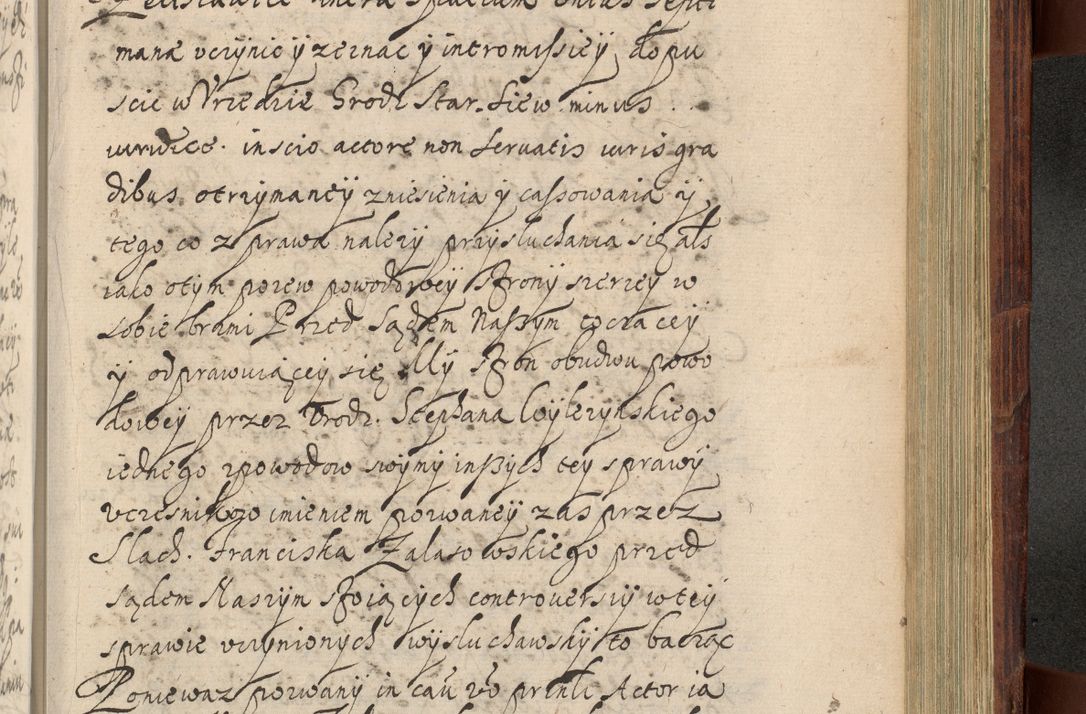 manæ vczynic ÿ zeznac ÿ intromissieÿ dopu
scic w Vrzedzie Grodz. Star. Siew minus
iuridice. inscio actore non servatis iuris gra
dibus otrzÿmaneÿ zniesienia ÿ cassowania ÿ
tego co z prawa nalezÿ przÿsluchania się als
iako otÿm pozew powodoweÿ stronÿ szerzeÿ w
sobie brzmi Przed Sądem Naszÿm toczaceÿ
ÿ odprawuiąceÿ się Mÿ stron obudwu powo
doweÿ przez Vrodz. Stephana Wÿlezÿnskiego
iednego z powodow swÿm ÿ inszÿch teÿ sprawÿ
vczesnikow imieniem pozwaneÿ zas przez
Slach. Franciska Zalasowskiego przed
sądem Naszÿm stoiącÿch controversiÿ w teÿ
sprawie vczÿnionÿch wÿsluchawszÿ to bacząc
Poniewaz pozwanÿ in cau vo prnti Actor ia